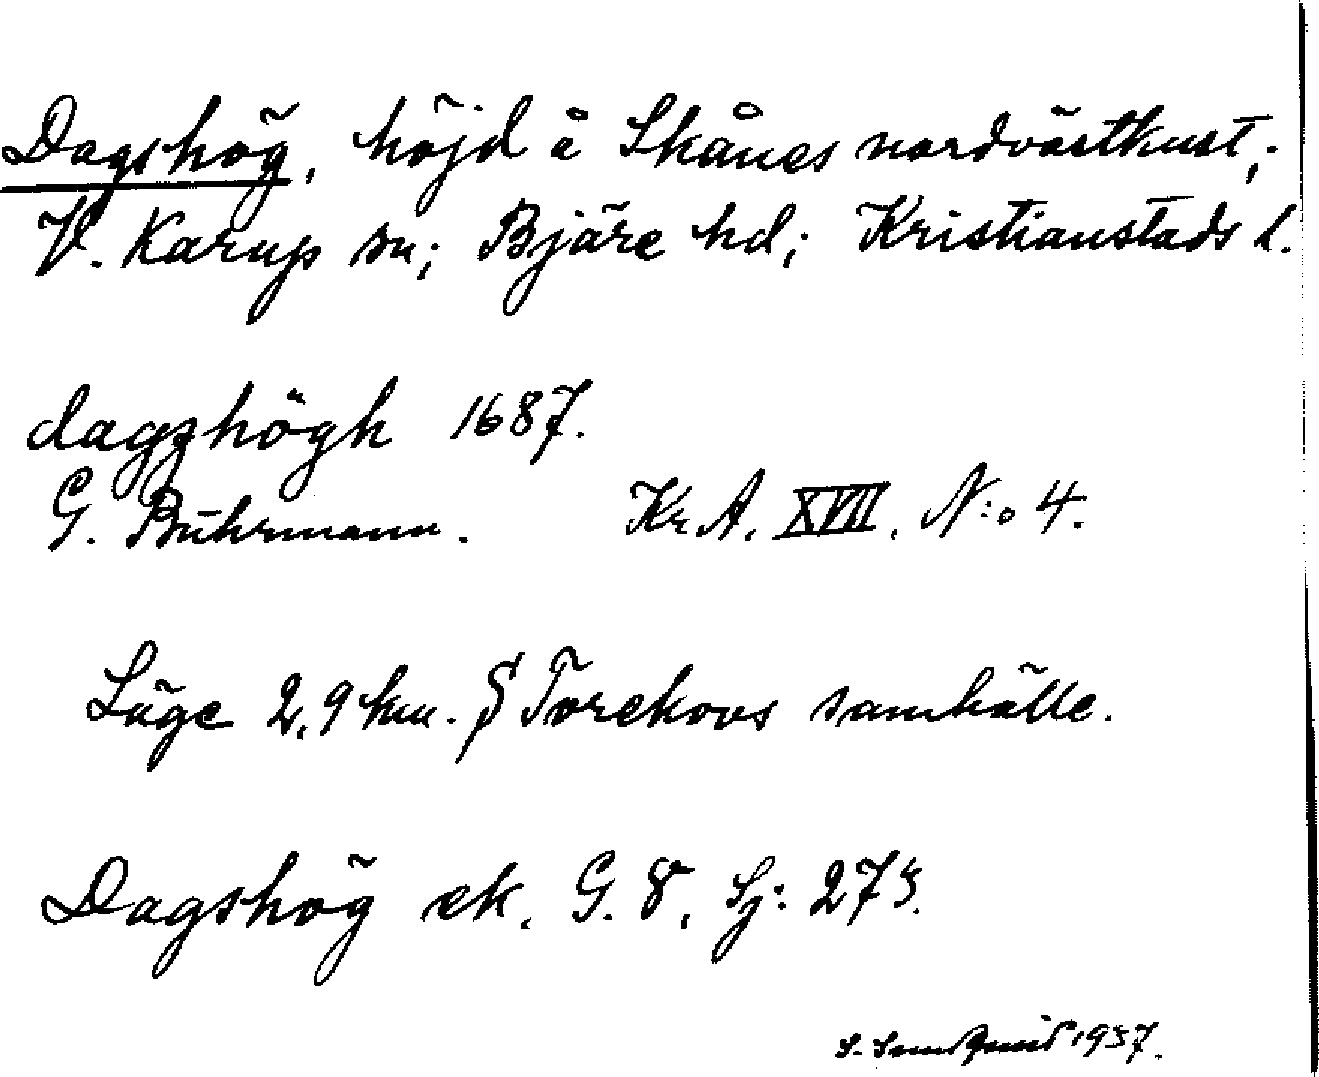 Dagshög, höjd å Skånes nordvästkust;
V. Karup sn; Bjäre hd; Kristianstads l.
dagzhögh 1687.
G. Buhrmann. Kr A. XVII. N:o 4.
Läge 2,9 km. S Torekovs samhälle.
Dagshög ek. G. 8. Sj: 275.
S. 1937.